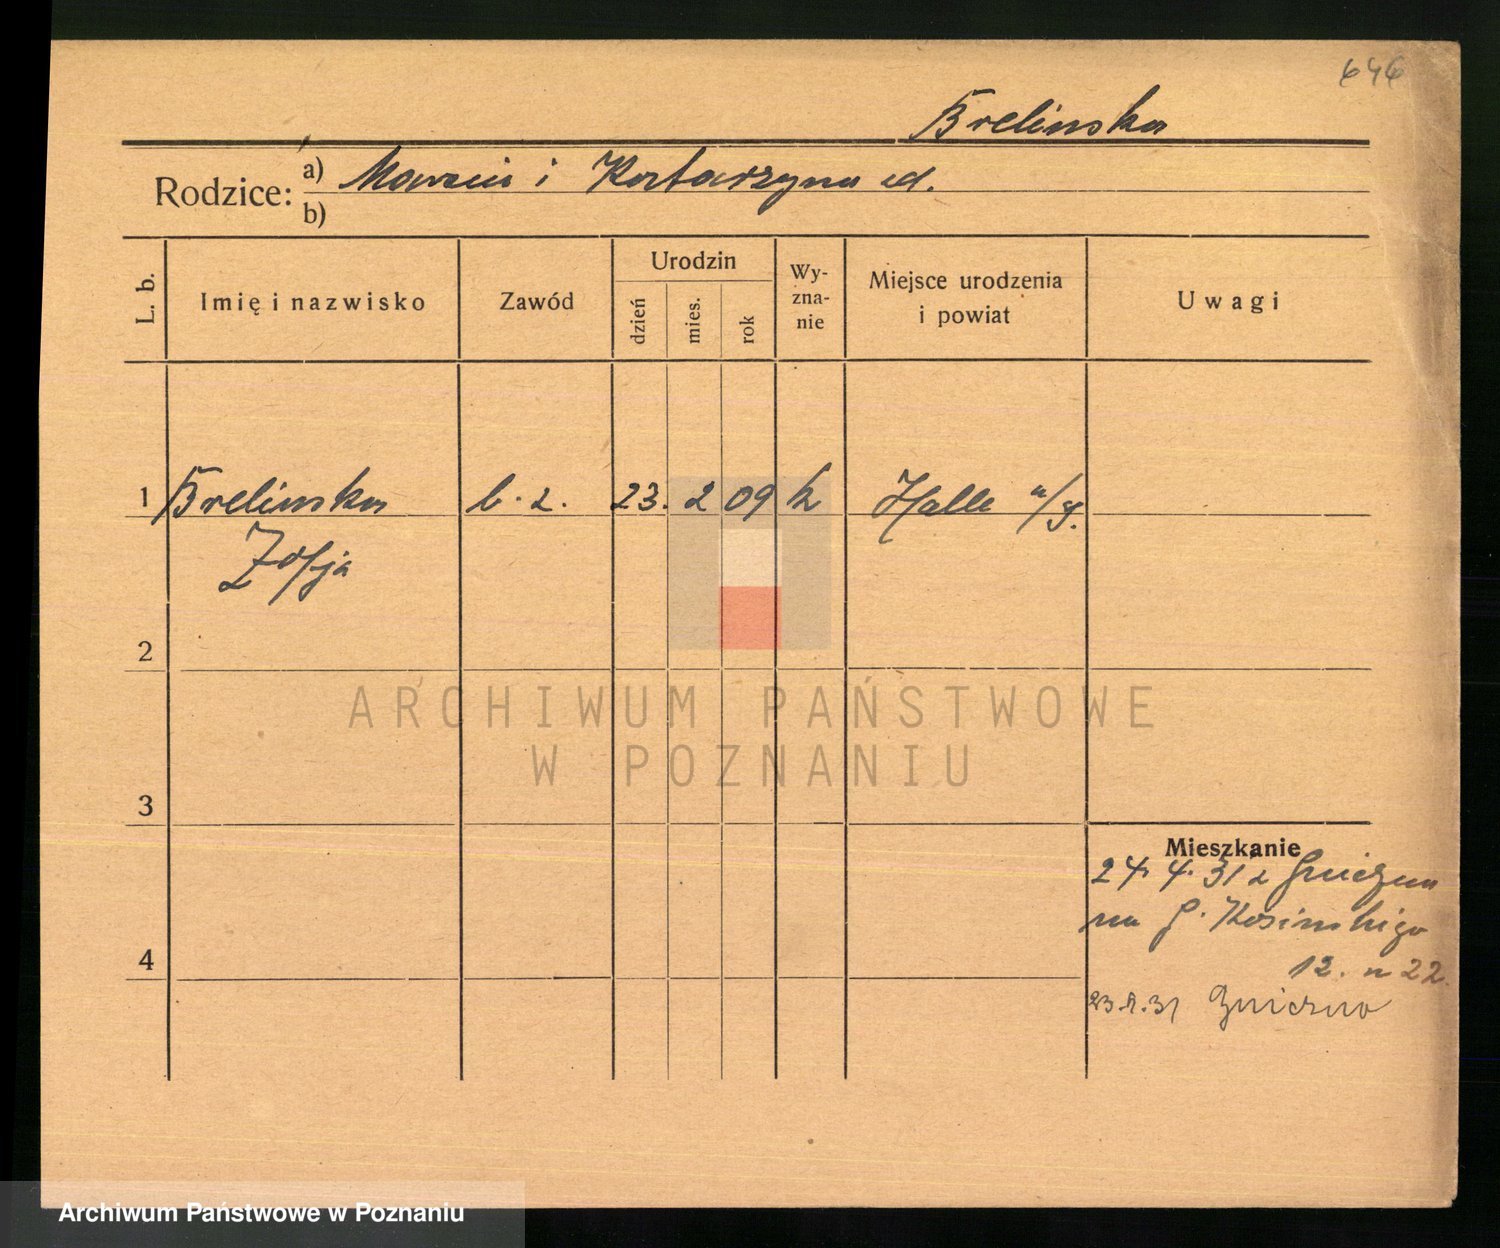 646
Brelinska
Rodzice:
a) Marcin i Katarzyna
b)
L. b.
Imię i nazwisko
Zawód
Urodzin
dzień
mies.
rok
Wy-
zna-
nie
Miejsce urodzenia
i powiat
Uwagi
1 Brelinska b. z. 23. 2 09 k Halle a/S.
Zofja
2
3
4
Mieszkanie
24. 4. 31 z Gniezna
na G. Kosinskigo
12. m 22.
31 Gniezno
ARCHIWUM PAŃSTWOWE
W POZNANIU
Archiwum Państwowe w Poznaniu